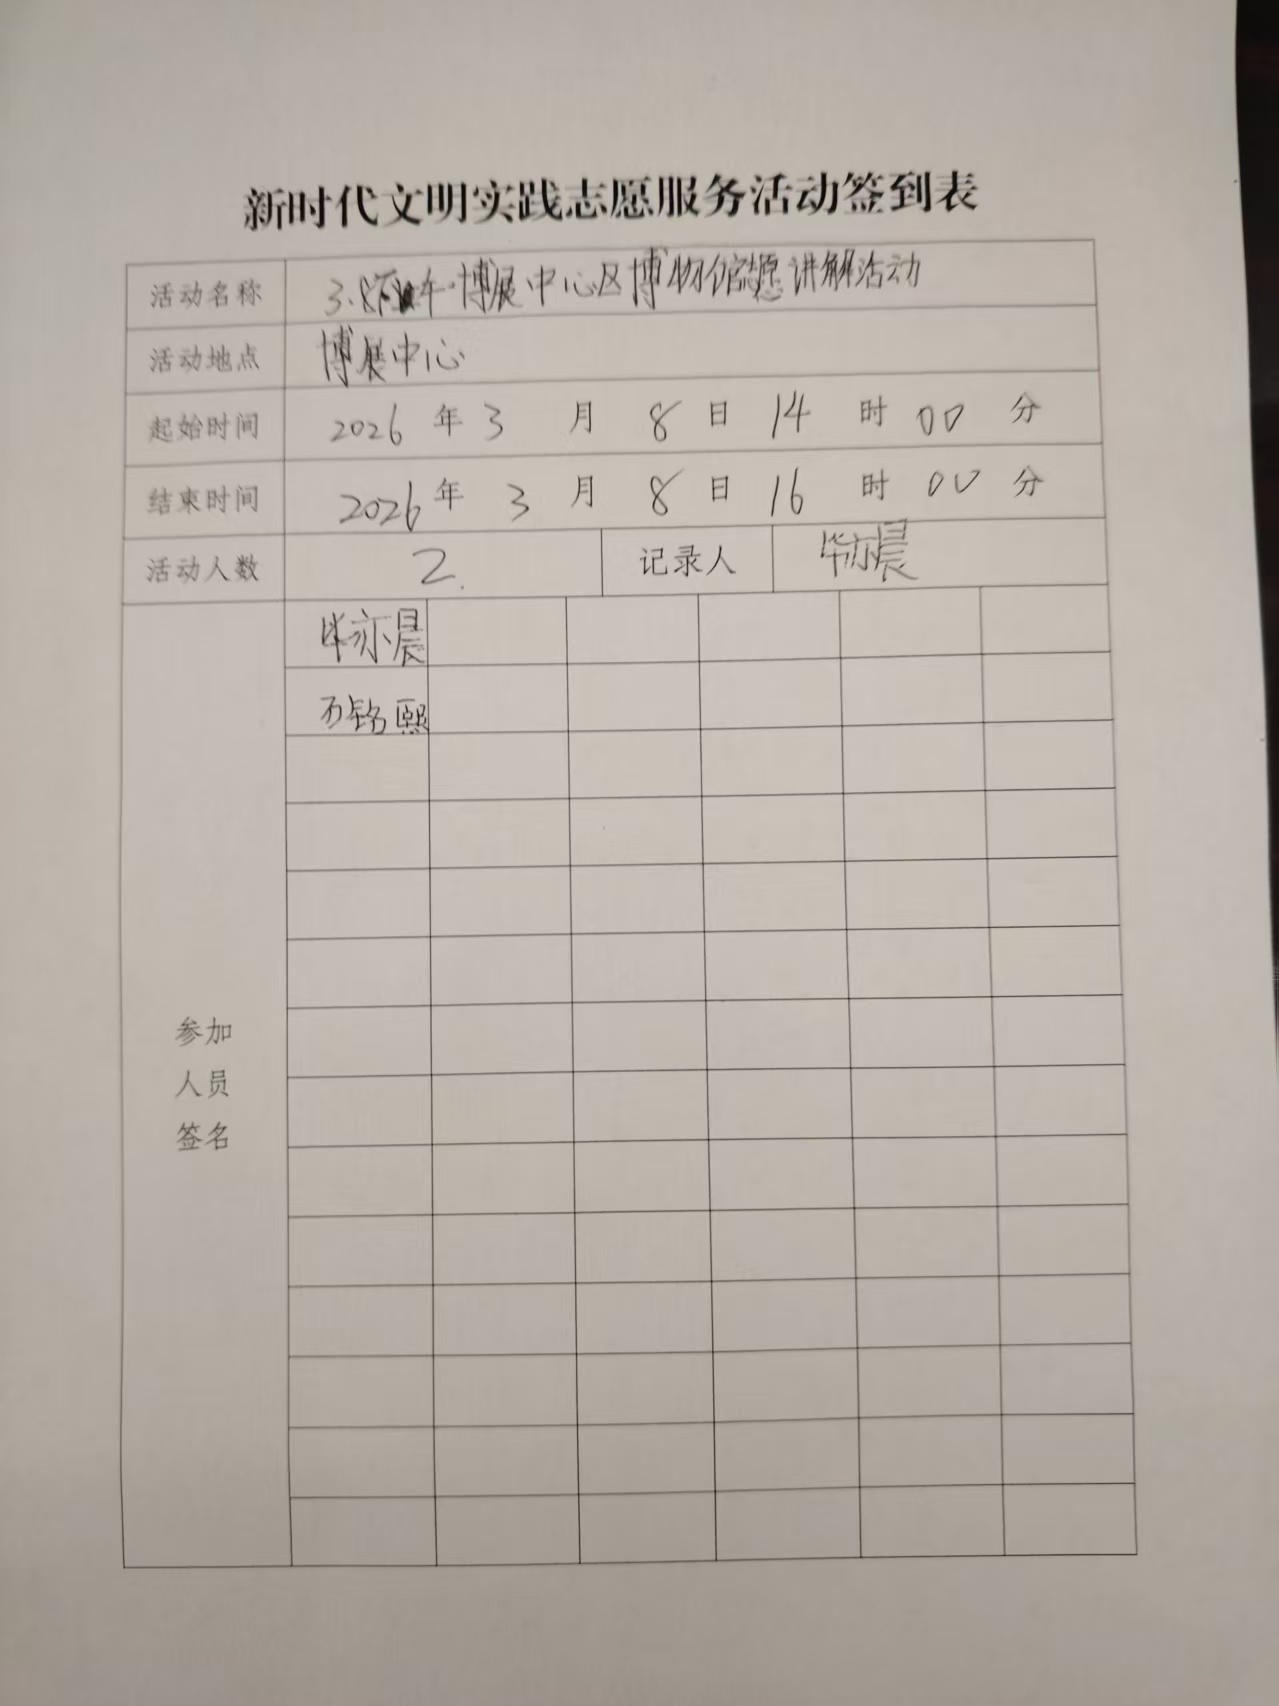 新时代文明实践志愿服务活动签到表
活动名称 3.8下午博展中心区博物馆志愿讲解活动
活动地点 博展中心
起始时间 2026 年 3 月 8 日 14 时 00 分
结束时间 2026 年 3 月 8 日 16 时 00 分
活动人数 2. 记录人 毕亦晨
毕亦晨
铭熙
参加
人员
签名